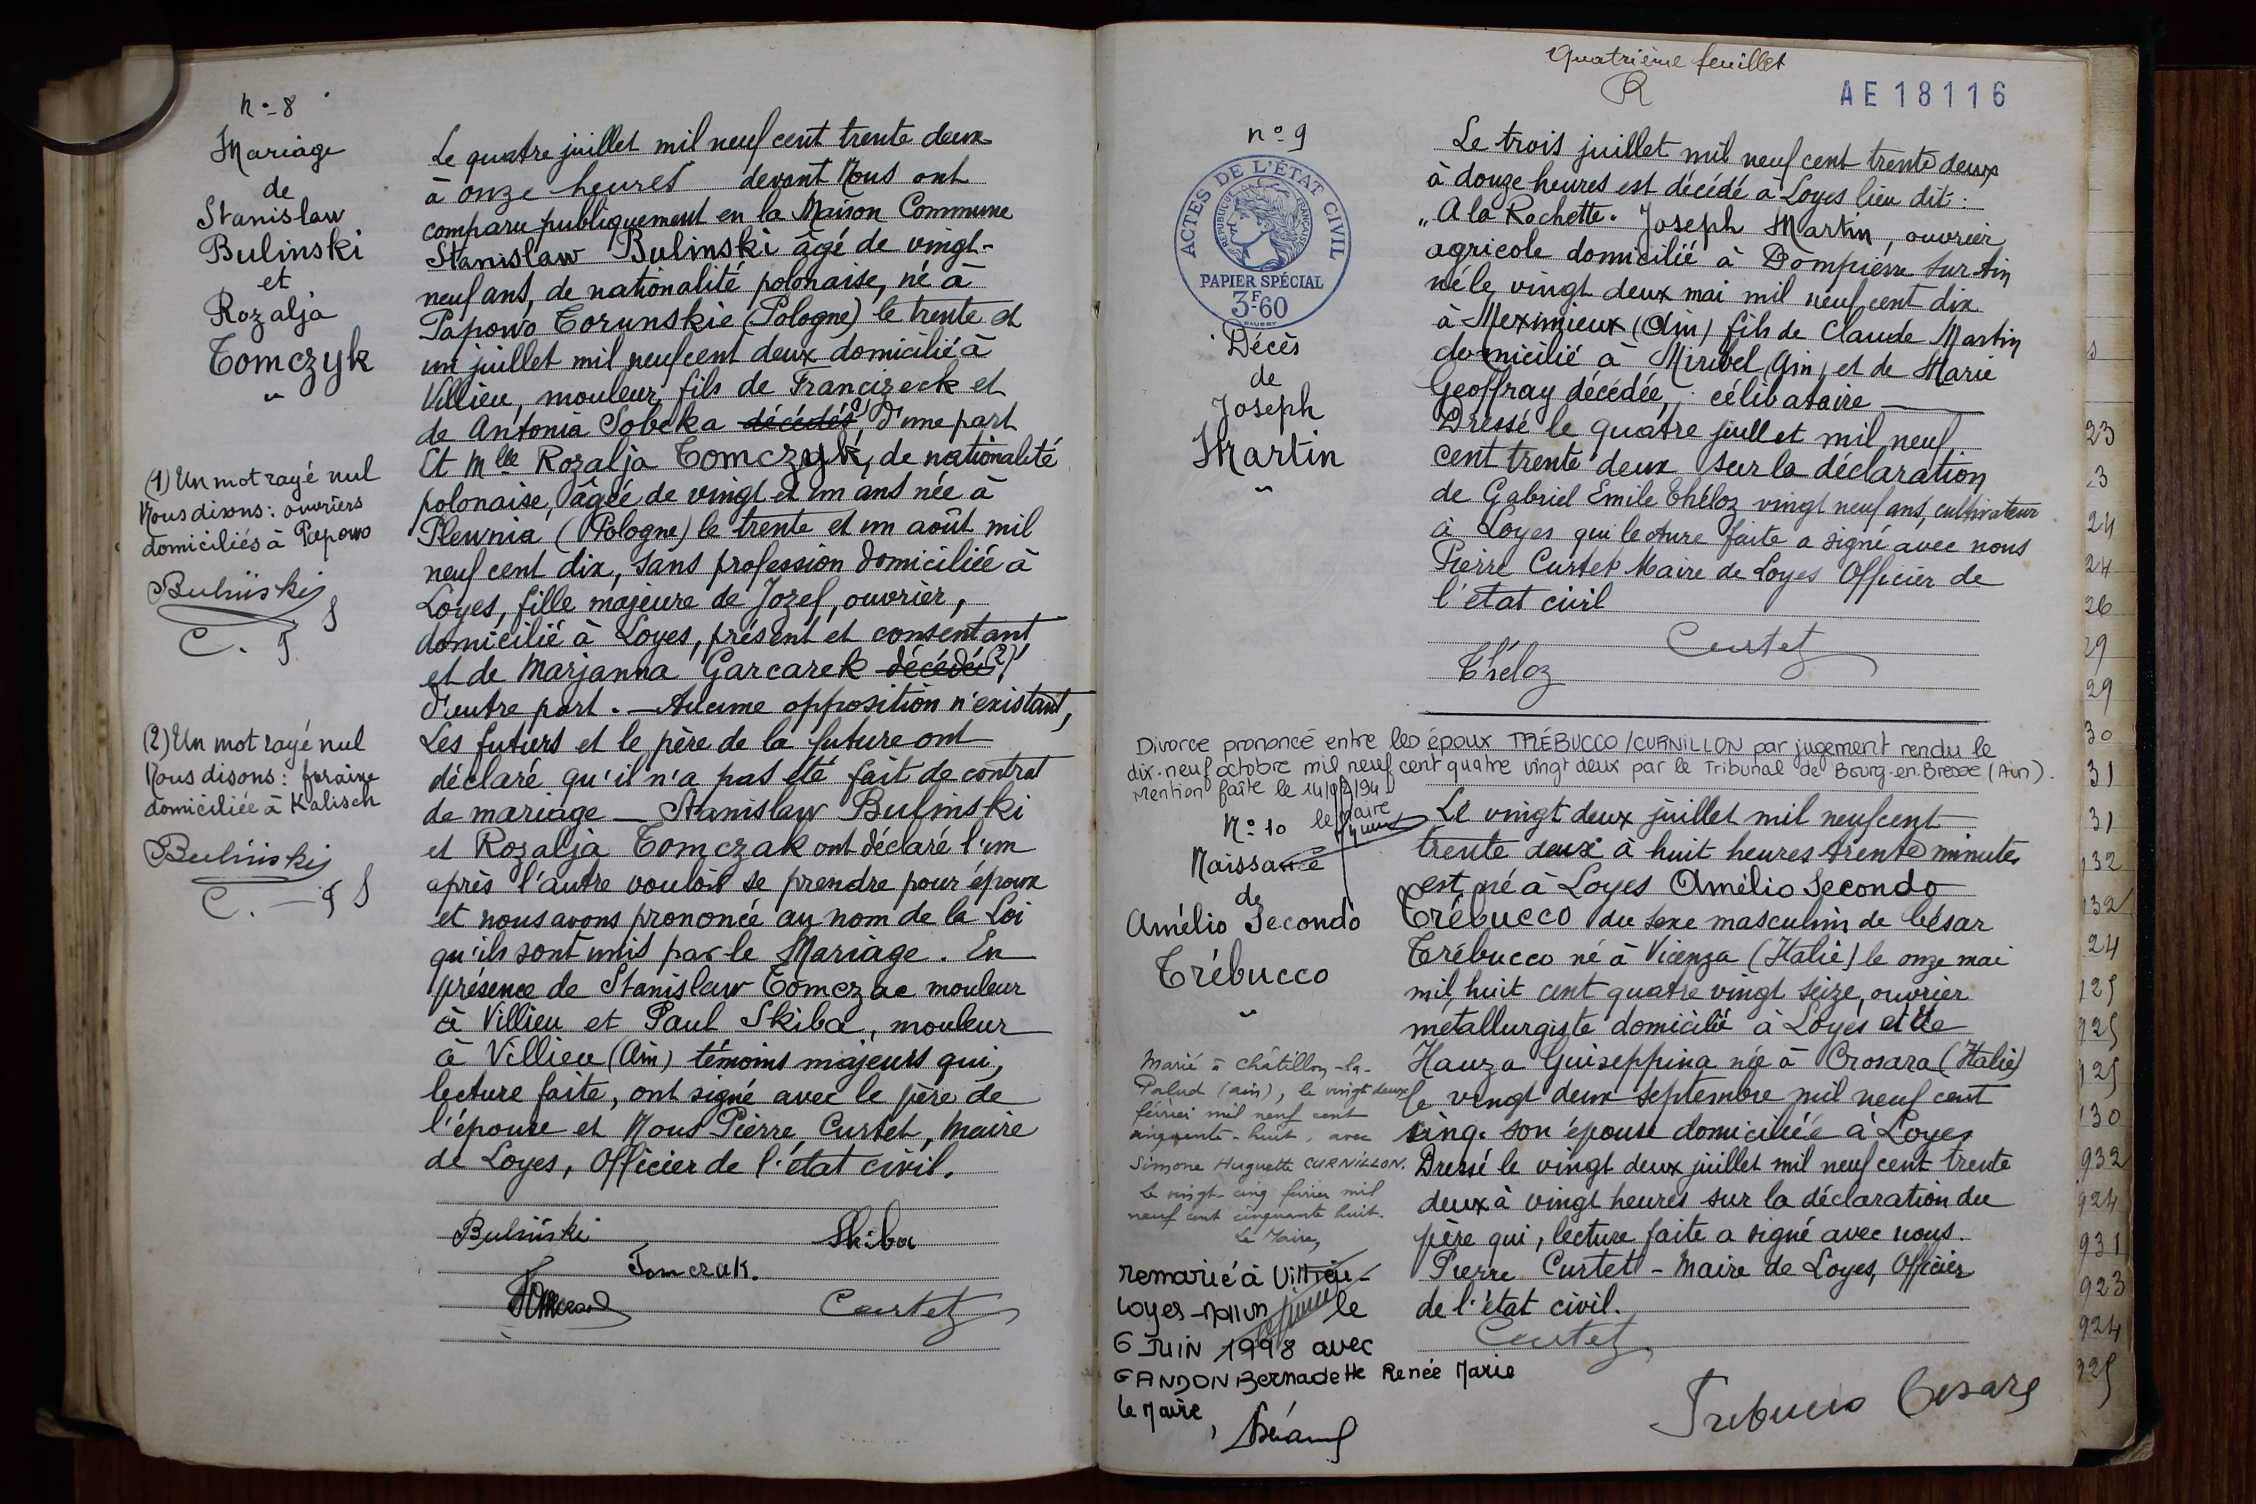 n° 8
Mariage
de
Stanislaw
Bulinski
et
Rozalja
Tomczyk
Le quatre juillet mil neuf cent trente deux
à onze heures devant Nous ont
comparu publiquement en la Maison Commune
Stanislaw Bulinski âgé de vingt-
neuf ans, de nationalité polonaise, né à
Papowo Torunskie (Pologne) le trente et
un juillet mil neuf cent deux domicilié à
Villieu, mouleur, fils de Francizeck et
de Antonia Sobcka décédés (1), d'une part
Et Mlle Rozalja Tomczyk, de nationalité
polonaise, âgée de vingt et un ans née à
Plewnia (Pologne) le trente et un août mil
neuf cent dix, sans profession domiciliée à
Loyes, fille majeure de Jozef, ouvrier,
domicilié à Loyes, présent et consentant
et de Marjanna Garcarek décédée (2),
d'autre part. — Aucune opposition n'existant,
Les futurs et le père de la future ont
déclaré qu'il n'a pas été fait de contrat
de mariage — Stanislaw Bulinski
et Rozalja Tomczak ont déclaré l'un
après l'autre vouloir se prendre pour époux
et nous avons prononcé au nom de la Loi
qu'ils sont unis par le Mariage. En
présence de Stanislaw Tomczac mouleur
à Villieu et Paul Skiba, mouleur
à Villieu (Ain) témoins majeurs qui,
lecture faite, ont signé avec le père de
l'épouse et Nous Pierre Curtet, Maire
de Loyes, Officier de l'état civil.
Bulinski Skiba
Tomczak.
Curtet
(1) Un mot rayé nul
Nous disons: ouvriers
domiciliés à Papowo
Bulinski
C. T S
(2) Un mot rayé nul
Nous disons: foraine
domiciliée à Kalisch
Bulinski
C. — T S
Quatrième feuillet
R
AE 18116
n° 9
ACTES DE L'ÉTAT CIVIL
RÉPUBLIQUE FRANÇAISE
PAPIER SPÉCIAL
3F.60
Décès
de
Joseph
Martin
Le trois juillet mil neuf cent trente deux
à douze heures est décédé à Loyes lieu dit:
"A la Rochette. Joseph Martin, ouvrier
agricole domicilié à Dompierre sur Ain
né le vingt deux mai mil neuf cent dix
à Meximieux (Ain) fils de Claude Martin
domicilié à Miribel, Ain, et de Marie
Geoffray décédée, célibataire —
Dressé le quatre juillet mil neuf
cent trente deux sur la déclaration
de Gabriel Emile Théloz vingt neuf ans, cultivateur
à Loyes qui lecture faite a signé avec nous
Pierre Curtet Maire de Loyes Officier de
l'état civil
Curtet
Théloz
Divorce prononcé entre les époux TRÉBUCCO / CURNILLON par jugement rendu le
dix-neuf octobre mil neuf cent quatre vingt deux par le Tribunal de Bourg-en-Bresse (Ain).
Mention faite le
le maire
N° 10
Naissance
de
Amélio Secondo
Trébucco
Le vingt deux juillet mil neuf cent
trente deux à huit heures trente minutes
est né à Loyes Amélio Secondo
Trébucco du sexe masculin de César
Trébucco né à Vicenza (Italie) le onze mai
mil huit cent quatre vingt seize, ouvrier
métallurgiste domicilié à Loyes et de
Hauza Guiseppina née à Crosara (Italie)
le vingt deux septembre mil neuf cent
cinq. son épouse domiciliée à Loyes
Dressé le vingt deux juillet mil neuf cent trente
deux à vingt heures sur la déclaration du
père qui, lecture faite a signé avec nous.
Pierre Curtet - Maire de Loyes, Officier
de l'état civil.
Curtet
Trebucco Cesare
Marié à Châtillon-la-
Palud (Ain), le vingt deux
février mil neuf cent
cinquante-huit, avec
Simone Huguette CURNILLON.
Le vingt-cinq février mil
neuf cent cinquante huit.
Le Maire,
Remarié à Villieu-
Loyes-Mollon le
6 JUIN 1998 avec
GANDON Bernadette Renée Marie
Le Maire,
23
3
24
24
26
29
29
30
31
31
132
132
24
125
925
125
130
932
924
931
923
924
925